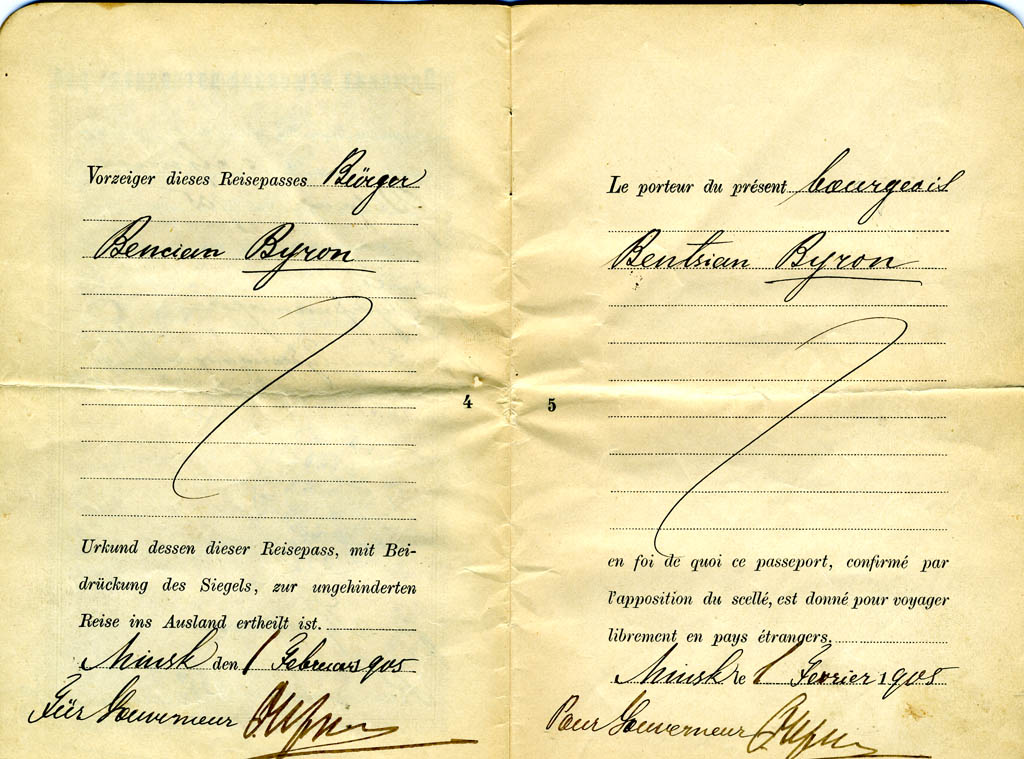 Vorzeiger dieses Reisepasses Bürger
Bencian Byron
4
Urkund dessen dieser Reisepass, mit Bei-
drückung des Siegels, zur ungehinderten
Reise ins Ausland ertheilt ist.
Minsk den 1 Februar 1905
Für Gouverneur
Le porteur du présent bourgeois
Bentsian Byron
5
en foi de quoi ce passeport, confirmé par
l'apposition du scellé, est donné pour voyager
librement en pays étrangers,
Minsk le 1 Fevrier 1905
Pour Gouverneur